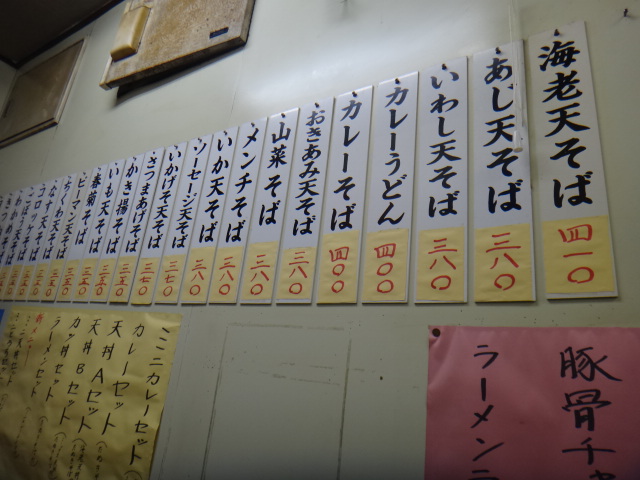 海老天そば
四一〇
あじ天そば
三八〇
いわし天そば
三八〇
カレーうどん
四〇〇
カレーそば
四〇〇
おきあみ天そば
三八〇
山菜そば
三八〇
メンチそば
三八〇
いか天そば
三八〇
ソーセージ天そば
三八〇
いかげそ天そば
三七〇
さつまあげそば
三七〇
かき揚そば
三五〇
いも天そば
三五〇
春菊そば
三五〇
ピーマン天そば
三五〇
ちくわ天そば
三五〇
なす天そば
三五〇
コロッケそば
豚骨
ラーメン
ミニカレーセット
カレーセット
天丼Aセット
天丼Bセット
カツ丼セット
ラーメンセット